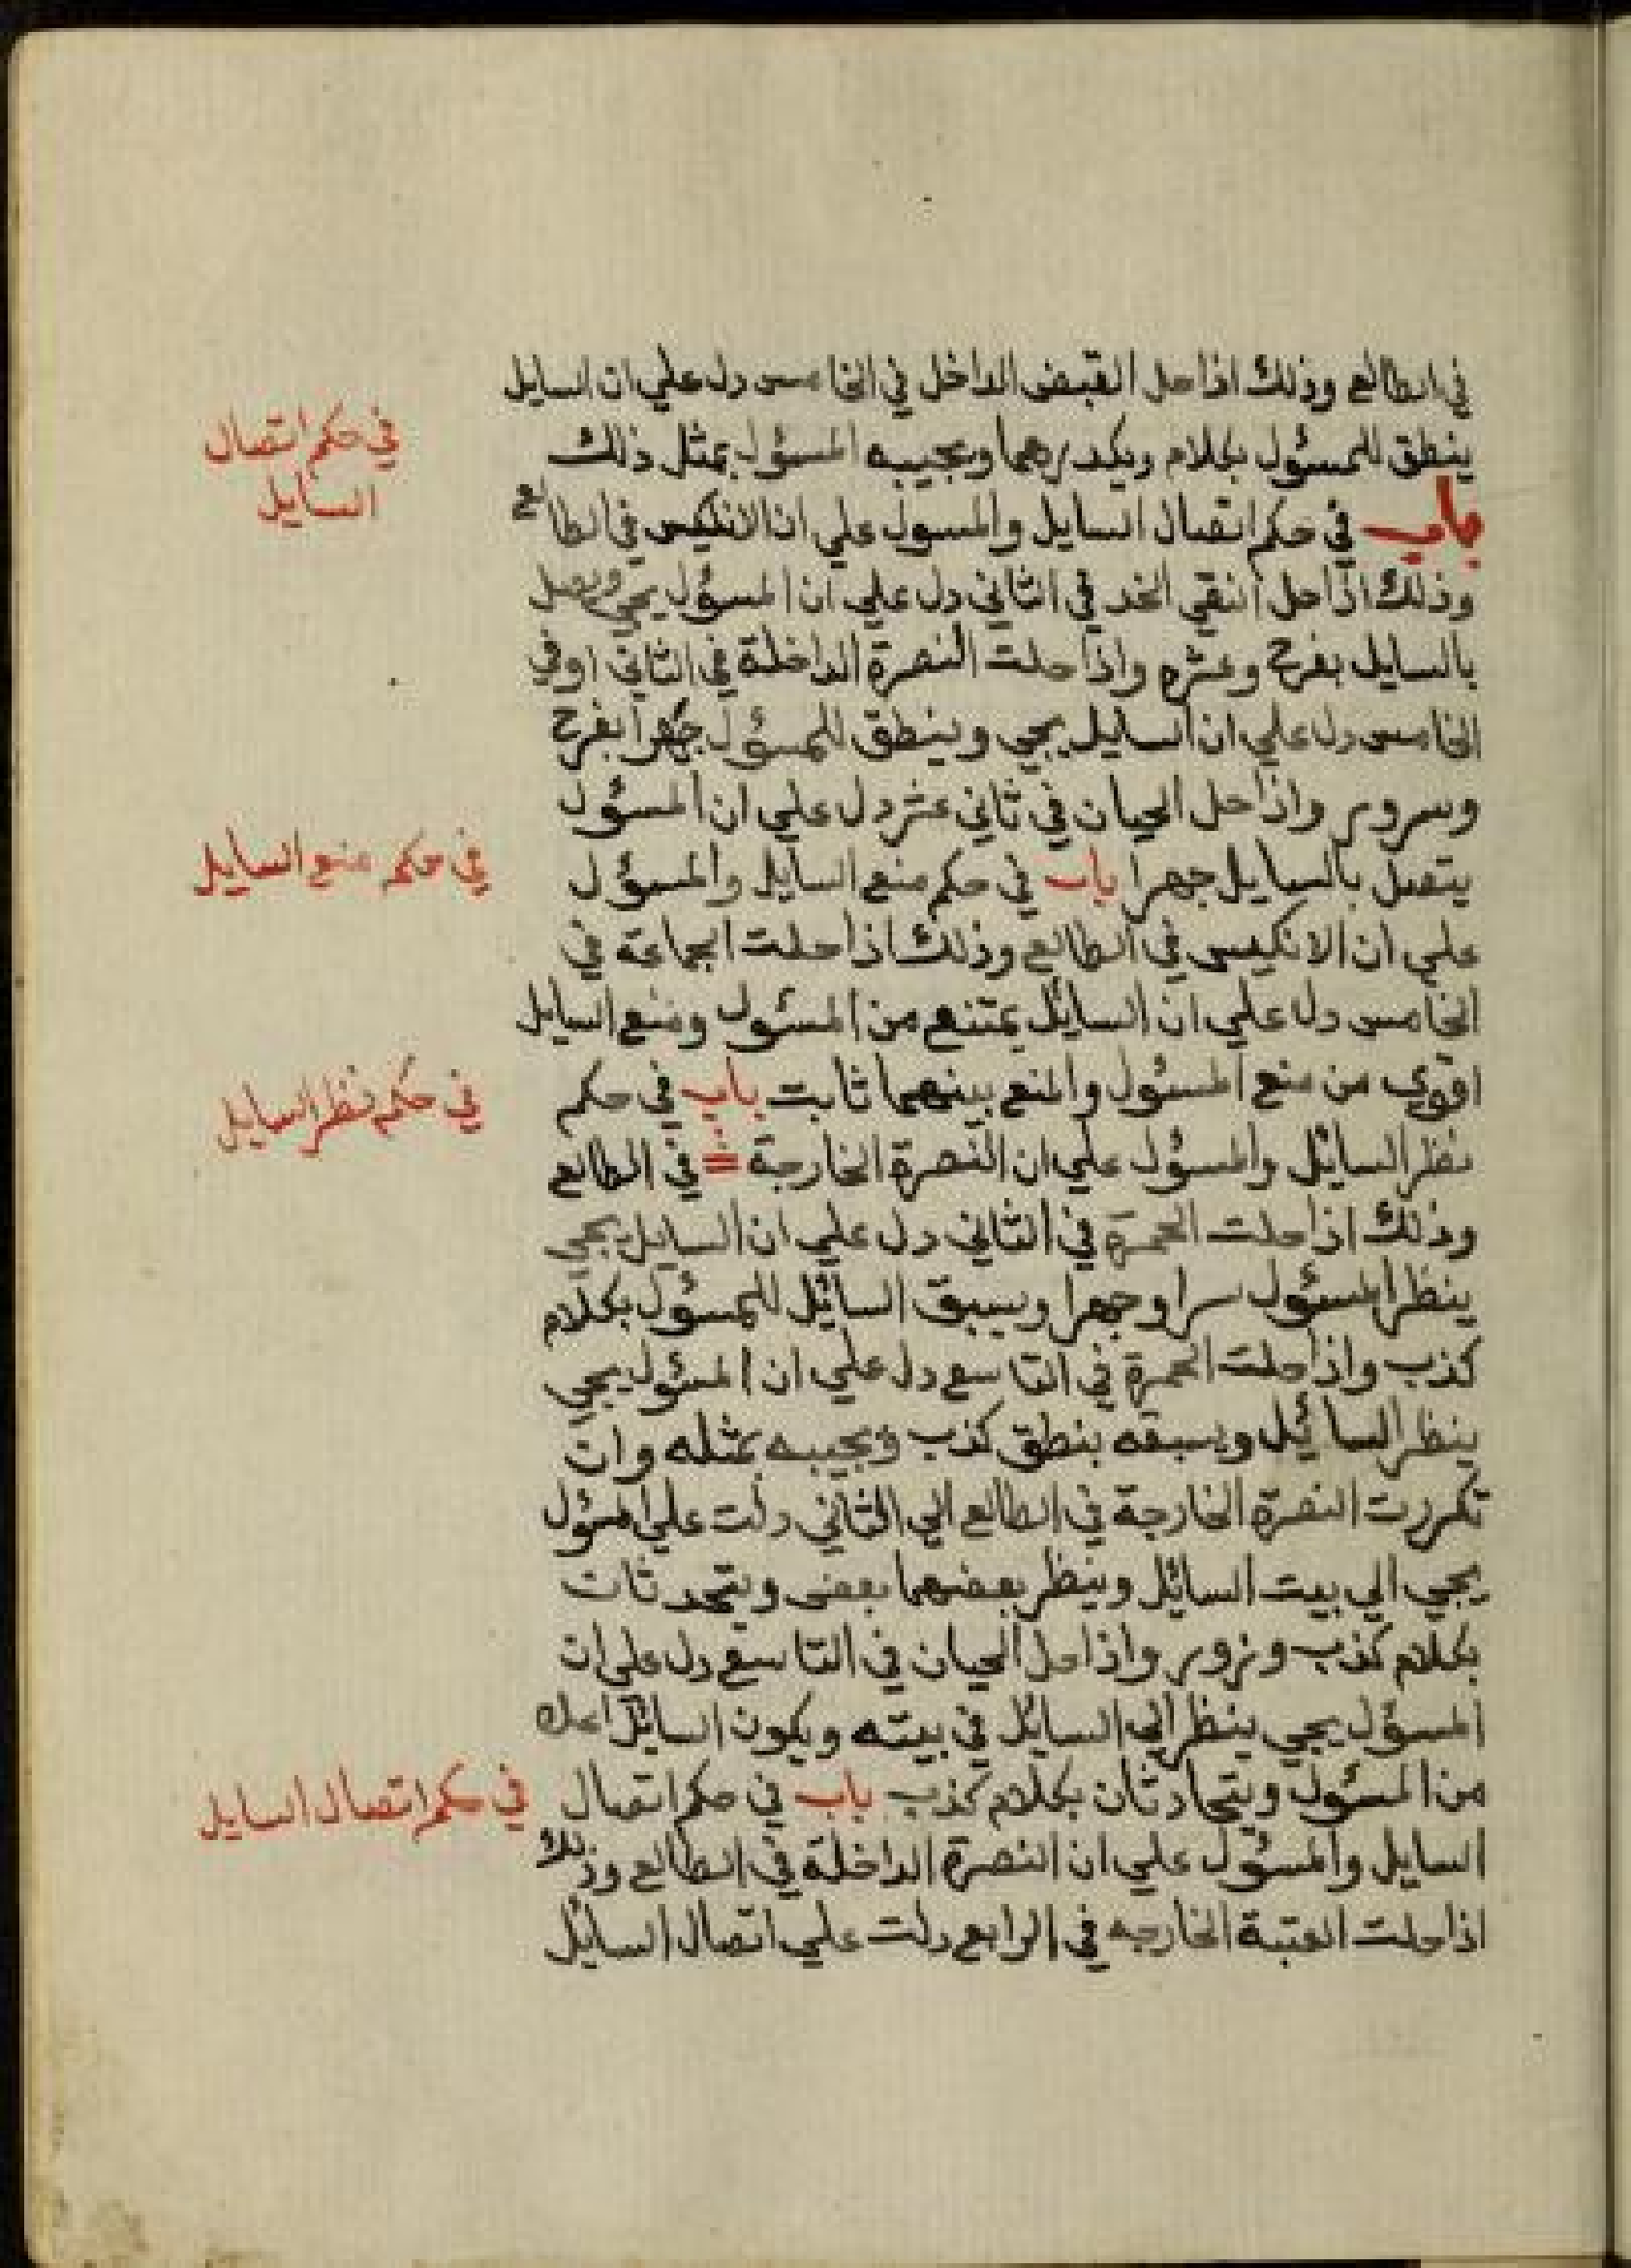 في الطالع وذلك اذا حل القبض الداخل في الخامس دل علي ان السايل
ينطق للمسئول بكلام ويجيبه المسئول بمثل ذلك
باب في حكم اتصال السايل والمسول علي ان الانكيس في الطالع
وذلك اذا حل النقي الخد في الثاني دل علي ان المسؤل يجي ويتصل
بالسايل بفرح وعشره واذا حلت النصرة الداخلة في الثاني اوفي
الخامس دل علي ان السايل يجي وينطق للمسؤل جهرا بفرح
وسرور واذا حل الحيان في ثاني عشر دل علي ان المسئول
يتصل بالسايل جهرا باب في حكم منع السايل والمسؤل
علي ان الانكيس في الطالع وذلك اذا حلت الجماعة في
الخامس دل علي ان السائل يمتنع من المسئول ومنع السايل
اقوي من منع المسئول والمنع بينهما ثابت باب في حكم
نظر السائل والمسؤل علي ان النصرة الخارجة في الطالع
وذلك اذا حلت الحمرة في الثاني دل علي ان السايل يجي
ينظر المسئول سرا وجهرا ويسبق السائل للمسؤل بكلام
كذب واذا حلت الحمرة في التاسع دل علي ان المسئول يجي
ينظر السائل ويسبقه بنطق كذب ويجيبه بمثله وان
تكررت النصرة الخارجة في الطالع الي الثاني دلت علي المسؤل
يجي الي بيت السائل وينظر بعضهما بعض ويتحدثان
بكلام كذب وزور واذا حل الحيان في التاسع دل علي ان
المسؤل يجي ينظر الي السائل في بيته ويكون السائل
من المسؤل ويتحادثان بكلام كذب باب في حكم اتصال
السايل والمسؤل علي ان النصرة الداخلة في الطالع وذلك
اذا حلت العتبة الخارجه في الرابع دلت علي اتصال السائل
في حكم اتصال
السايل
في حكم منع السايل
في حكم نظر السايل
في حكم اتصال السايل